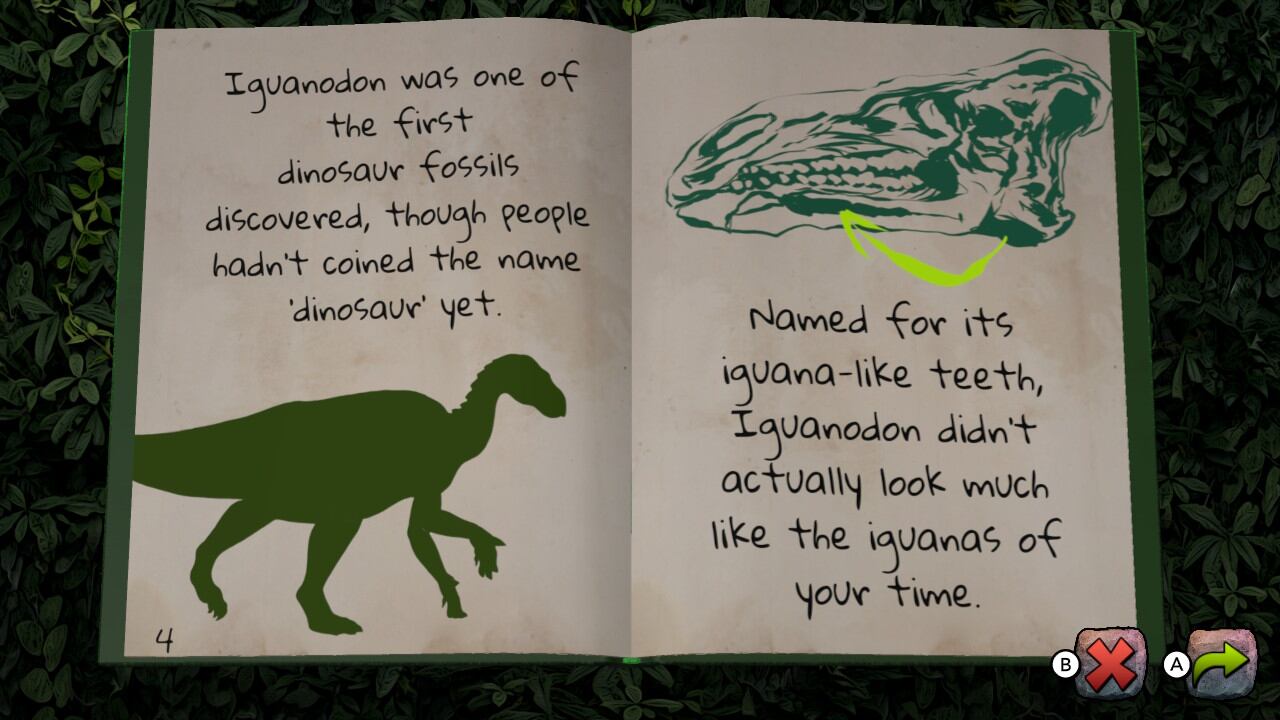 Iguanodon was one of
the first
dinosaur fossils
discovered, though people
hadn't coined the name
'dinosaur' yet.
4
Named for its
iguana-like teeth,
Iguanodon didn't
actually look much
like the iguanas of
your time.
B
A